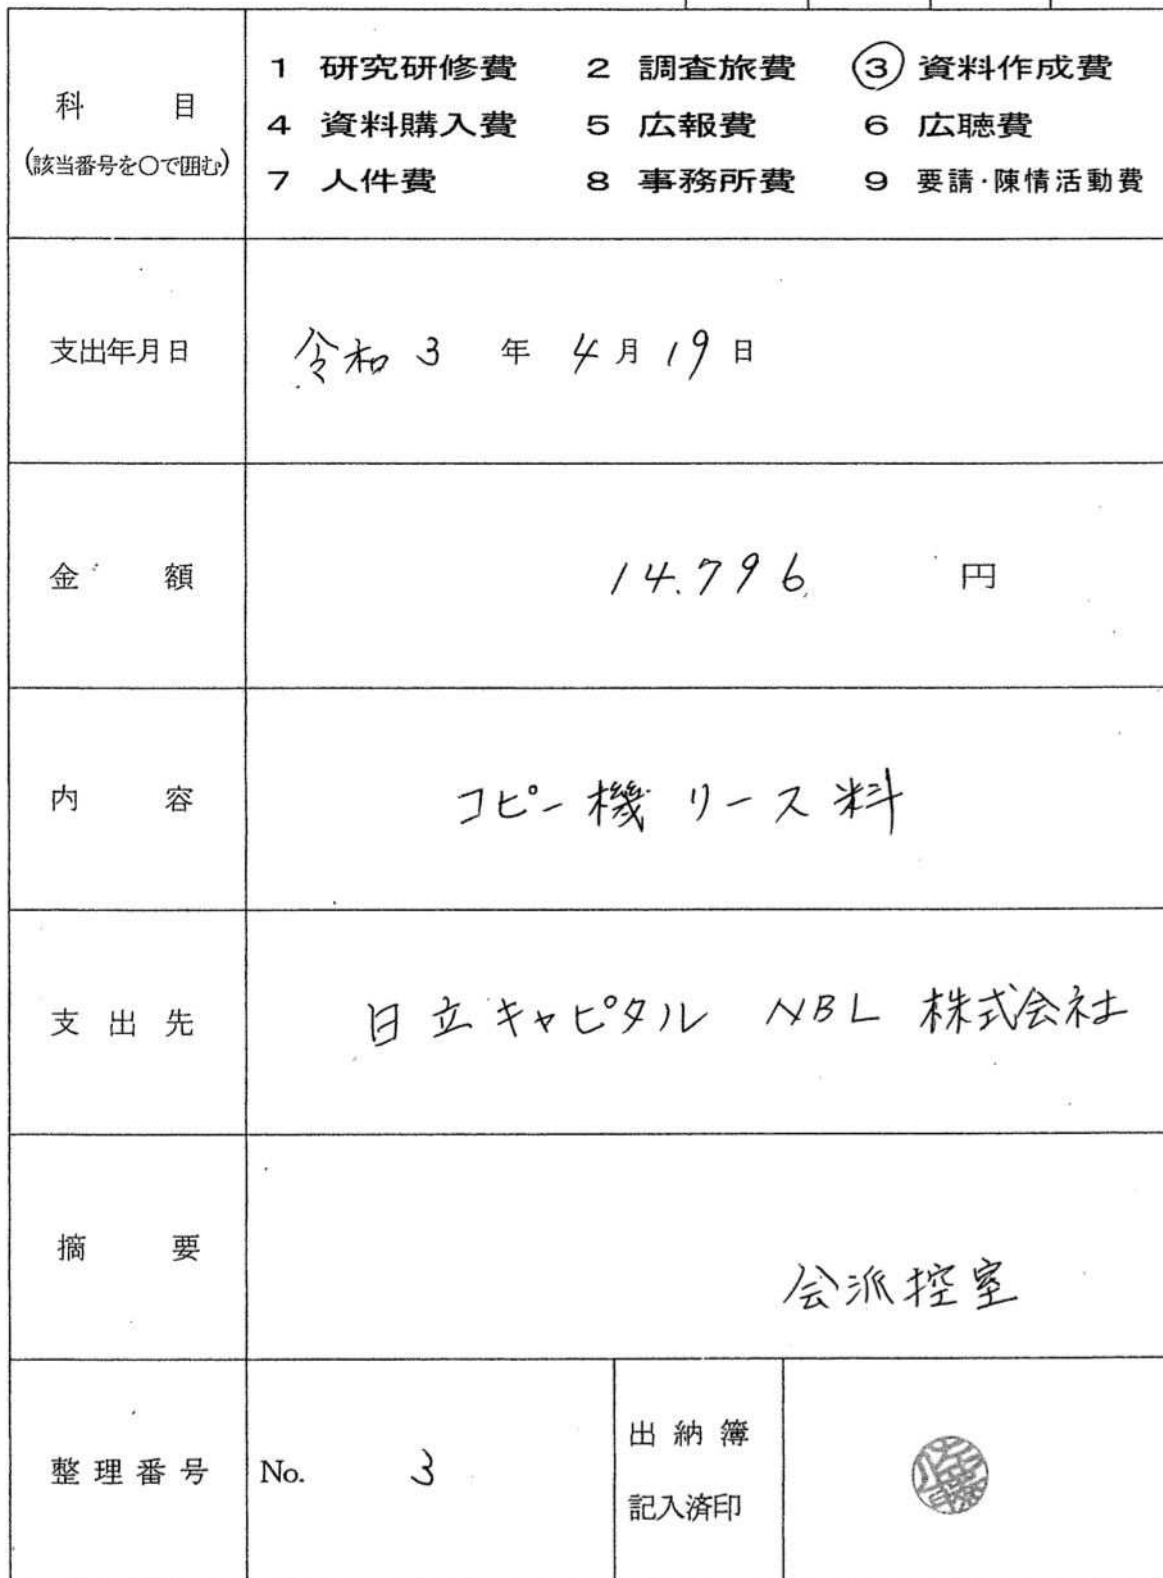 科目
(該当番号を○で囲む)
1 研究研修費 2 調査旅費 ③ 資料作成費
4 資料購入費 5 広報費 6 広聴費
7 人件費 8 事務所費 9 要請・陳情活動費
支出年月日 令和 3 年 4 月 19 日
金額 14.796 円
内容 コピー機 リース料
支出先 日立キャピタル NBL 株式会社
摘要 会派控室
整理番号 No. 3
出納簿
記入済印